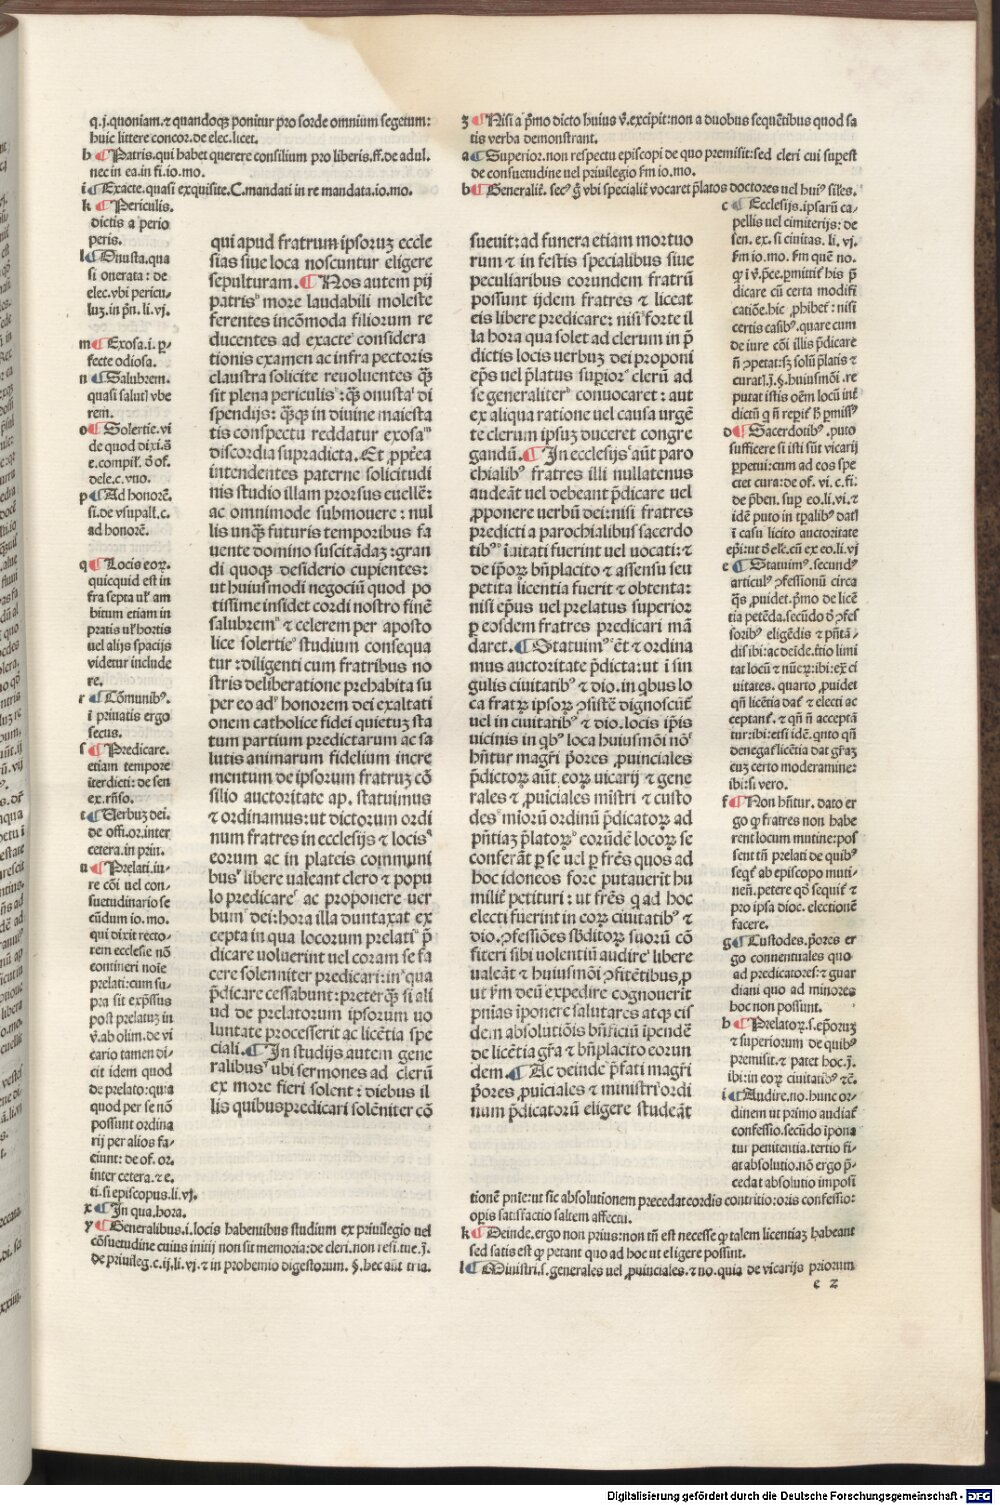 q.j.quoniam.⁊ quandoqꝫ ponitur pro sorde omnium segetum:
huic littere concor.de elec.licet.
h ¶ Patris.qui habet querere consilium pro liberis.ff.de adul.
nec in ea.in fi.io.mo.
i ¶ Exacte.quasi exquisite.C.mandati in re mandata.io.mo.
k ¶ Periculis.
dictis a perio
peris.
l ¶ Onusta.qua
si onerata: de
elec.vbi pericu⸗
luꝫ.in pṅ.li.vj.
m ¶ Exosa.i.ꝑ⸗
fecte odiosa.
n ¶ Salubrem.
quasi saluti vbe
rem.
o ¶ Solertie.vi
de quod dixi.s̄
p ¶ Ad honorē.
si.de vsupatꝭ.c.
ad honorē.
q ¶ Locis eoꝝ.
quicquid est in
fra septa uł am
bitum etiam in
pratis uł hortis
uel alijs spacijs
videtur include
re.
r ¶ Cōmunibꝰ.
ī priuatis ergo
secus.
s ¶ Predicare.
etiam tempore
īterdicti: de sen
ex.rn̄so.
t ¶ Uerbuꝫ dei.
de offi.or.inter
cetera.in prin.
u ¶ Prelati.iu⸗
re cōi uel con⸗
suetudinario se
cūdum io.mo.
qui dixit recto⸗
rem ecclesie nō
contineri noīe
prelati:cum su⸗
pra sit exp̄ssus
post prelatuꝫ in
v̄.ab olim.de vi
cario tamen di⸗
cit idem quod
de prelato:qua
quod per se nō
possunt ordina
rij per alios fa⸗
ciunt: de of. or.
inter cetera.⁊ e.
ti.si episcopus.li.vj.
x ¶ In qua.hora.
y ¶ Generalibus.i.locis habentibus studium ex priuilegio uel
cōsuetudine cuius initij non sit memoria:de cleri.non resi.tue.j.
de priuileg.c.ij.li.vj.⁊ in prohemio digestorum. §.hec aūt tria.
qui apud fratrum ipsoruꝫ eccle
sias siue loca noscuntur eligere
sepulturam.¶ Nos autem pij
patrisʰ more laudabili moleste
ferentes incōmoda filiorum re
ducentes ad exacteⁱ considera
tionis examen ac infra pectoris
claustra solicite reuoluentes qꝫ̄
sit plena periculisᵏ:qꝫ̄ onustaˡ di
spendijs: qꝫ̄qꝫ in diuine maiesta
tis conspectu reddatur exosaᵐ
discordia supradicta. Et ꝓpt̄ea
intendentes paterne solicitudi
nis studio illam prorsus euellē:
ac omnimode submouere: nul
lis unqꝫ̄ futuris temporibus fa
uente domino suscitādaꝫ:gran
di quoqꝫ desiderio cupientes:
ut huiusmodi negociū quod po
tissime insidet cordi nostro finē
salubremⁿ ⁊ celerem per aposto
lice solertieᵒ studium consequa
tur:diligenti cum fratribus no
stris deliberatione prehabita su
per eo adᵖ honorem dei exaltati
onem catholice fidei quietuꝫ sta
tum partium predictarum ac sa
lutis animarum fidelium incre
mentum de ipsorum fratruꝫ cō
silio auctoritate ap. statuimus
⁊ ordinamus:ut dictorum ordi
num fratres in ecclesijs ⁊ locis
eorum ac in plateis communi
busʳ libere valeant clero ⁊ popu
lo predicareˢ ac proponere uer
bumᵗ dei:hora illa duntaxat ex
cepta in qua locorum prelatiᵘ p̄
dicare voluerint vel coram se fa
cere solenniter predicari:inˣ qua
p̄dicare cessabunt:preterqꝫ̄ si ali
ud de prelatorum ipsorum uo
luntate processerit ac licētia spe
ciali.¶ In studijs autem gene
ralibusʸ ubi sermones ad clerū
ex more fieri solent: diebus il
lis quibus predicari solēniter cō
ꝫ ¶ Nisi a p̄mo dicto huius v̄.excipit:non a duobus sequētibus quod sa
tis verba demonstrant.
a ¶ Superior.non respectu episcopi de quo premisit:sed cleri cui sup̄est
de consuetudine uel priuilegio s̄m io.mo.
sueuit:ad funera etiam mortuo
rum ⁊ in festis specialibus siue
peculiaribus eorundem fratrū
possunt ijdem fratres ⁊ liceat
eis libere predicare: nisiᶻ forte il
la hora qua solet ad clerum in p̄
dictis locis uerbuꝫ dei proponi
ep̄s vel p̄latus sup̄iorᵃ clerū ad
se generaliterᵇ conuocaret: aut
ex aliqua ratione vel causa urgē
te clerum ipsuꝫ duceret congre
gandū.¶ In ecclesijsᶜ aūt paro
chialibꝰ fratres illi nullatenus
audeāt uel debeant p̄dicare uel
ꝓponere verbū dei:nisi fratres
predicti a parochialibus sacerdo
tibꝰᵈ īuitati fuerint uel vocati:⁊
de ip̄oꝝ bn̄placito ⁊ assensu seu
petita licentia fuerit ⁊ obtenta:
nisi ep̄us vel prelatus superior
ꝑ eosdem fratres predicari mā
daret.¶ Statuimꝰᵉ ēt ⁊ ordina
mus auctoritate p̄dicta:ut ī sin
gulis ciuitatibꝰ ⁊ dio.in qbus lo
ca fratꝝ ipsoꝝ ꝯsistē dignoscūt
uel in ciuitatibꝰ ⁊ dio.locis ip̄is
vicinis in qbꝰ loca huiusmōi nōᶠ
hn̄tur magr̄i p̄ores ꝓuinciales
p̄dictoꝝ aūt eoꝝ uicarij ⁊ gene
rales ⁊ ꝓuiciales mīstri ⁊ custo
desᵍ mīorū ordinū p̄dicatoꝝ ad
pn̄tiaꝫ p̄latoꝝʰ corūdē locoꝝ se
conferāt ꝑ se uel ꝑ fr̄es quos ad
hoc idoneos fore putauerīt hu
milīt̄ petituri: ut fr̄es q ad hoc
electi fuerint in eoꝝ ciuitatibꝰ ⁊
dio.ꝯfessiōes sb̄ditoꝝ suorū cō
fiteri sibi volentiū audireⁱ libere
ualeāt ⁊ huiusmōi ꝯfitētibus ꝓ
ut s̄m deū expedire cognouerīt
pnias īponere salutares atqꝫ eis
dem absolutiōis bn̄ficiū īpendē
de licētia gr̄a ⁊ bn̄placito eorun
dem.¶ Ac deindeᵏ p̄fati magr̄i
p̄ores ꝓuiciales ⁊ ministriˡ ordi
num p̄dicatorū eligere studeāt
c ¶ Ecclesijs.ipsarū ca⸗
pellis uel cimiterijs: de
sen. ex.si ciuitas. li. vj.
dicare cū certa modifi
catiōe.hic ꝓhibet: nisi
certis casibꝰ.quare cum
de iure cōi illis p̄dicare
d ¶ Sacerdotibꝰ.puto
sufficere si isti sūt vicarij
ꝑpetui:cum ad eos spe
ctet cura:de of. vi. c.fi:
de p̄ben. sup̄ eo.li.vi.⁊
ī casu licito auctoritate
e ¶ Statuimꝰ.secundꝰ
articulꝰ ꝯfessionū circa
qd̄s ꝓuidet.p̄mo de licē
tia petēda.secūdo d̄ ꝯfes
soribꝰ eligēdis ⁊ pn̄tā⸗
dis ibi:ac deīde.tertio limi
tat locū ⁊ nūeꝝ:ibi:ex ci
uitates. quarto ꝓuidet
qn̄ licētia dat̄ ⁊ electi ac
ceptant̄. ⁊ qn̄ n̄ acceptā
tur:ibi:etsi idē.qnto qn̄
denegat̄ licētia dat gr̄aꝫ
cuꝫ certo moderamine:
ibi:si vero.
f ¶ Non hn̄tur. dato er
go qꝫ fratres non habe
rent locum mutine:pos
sent tn̄ prelati de quibꝰ
seqt̄ ab episcopo muti⸗
nen̄. petere qd̄ sequit̄ ⁊
pro ipsa dioc. electionē
facere.
g ¶ Custodes.p̄ores er
go conuentuales quo
ad predicatores:⁊ guar
diani quo ad minores
hoc non possunt.
h ¶ Prelatoꝝ.s.ep̄oruꝫ
⁊ superiorum de quibꝰ
premisit.⁊ patet hoc.j.
ibi:in eoꝝ ciuitatibꝰ ⁊c̄.
i ¶ Audire.no.hunc or⸗
dinem ut primo audiat̄
confessio.secūdo īpona
tur penitentia.tertio fi⸗
at absolutio.nō ergo p̄⸗
cedat absolutio imposi
tionē pnie:ut sic absolutionem precedat cordis contritio:oris confessio:
op̄is satisfactio saltem affectu.
k ¶ Deinde.ergo non prius:non tn̄ est necesse qꝫ talem licentiaꝫ habeant
sed satis est qꝫ petant quo ad hoc ut eligere possint.
l ¶ Ministri.s.generales uel ꝓuinciales.⁊ no.quia de vicarijs priorum
c 2
Digitalisierung gefördert durch die Deutsche Forschungsgemeinschaft - DFG